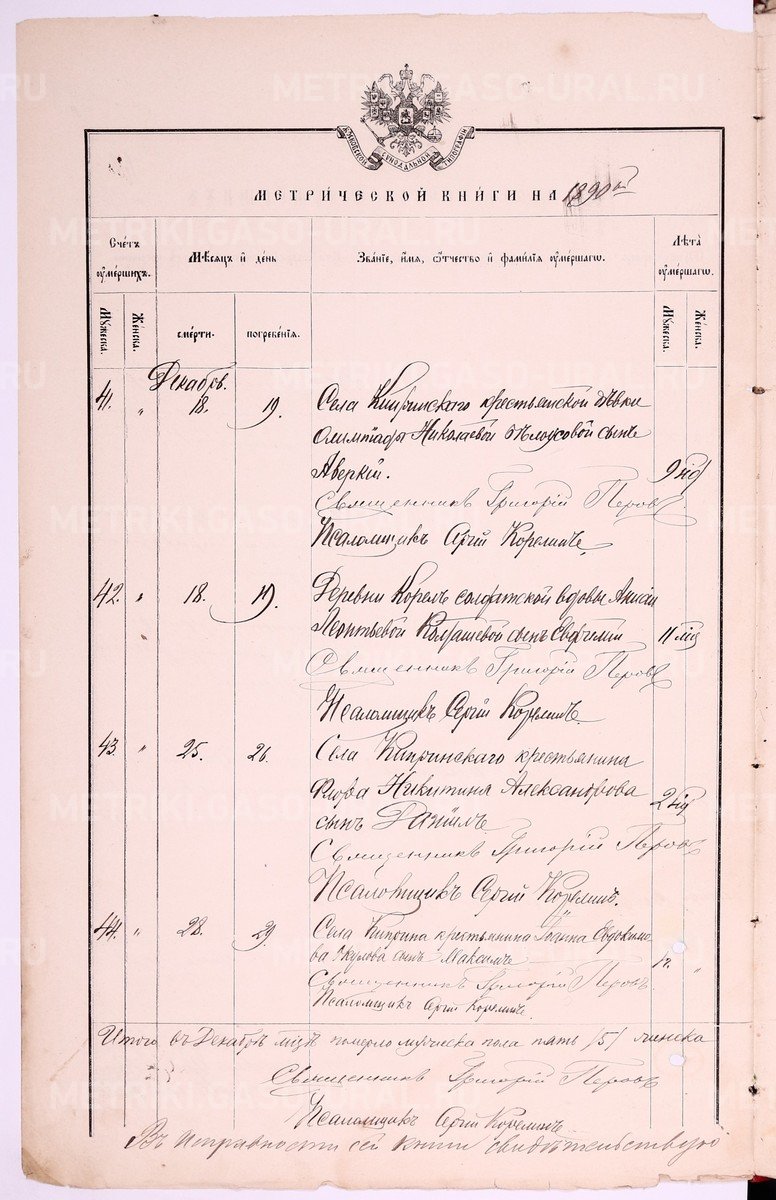 METRIKI.GASO-URAL.RU
МОСКОВСКОЙ СѴНОДАЛЬНОЙ ТИПОГРАФІИ
МЕТРИ́ЧЕСКОЙ КНИ́ГИ НА 1890 й
Сче́тъ ᲂу҆ме́ршихъ.
Мѣ́сѧцъ и҆ де́нь
Зва́нїе, и҆́мѧ, ѻ҆́тчество и҆ фамі́лїѧ ᲂу҆ме́ршагѡ.
Лѣ́та ᲂу҆ме́ршагѡ.
Мꙋ́жеска.
Же́нска.
сме́рти.
погребе́нїѧ.
Мꙋ́жеска.
Же́нска.
Декабрь.
41. " 18. 19. Села Кипринскаго крестьянской дѣвки
Олимпіады Николаевой Бѣлоусовой сынъ
Аверкій. 9 нд
Священникъ Григорій Перовъ
Псаломщикъ Сергій
42. " 18. 19. Деревни Корелъ солдатской вдовы
Леонтьевой сынъ Евфимій 11 мц
Священникъ Григорій Перовъ
Псаломщикъ Сергій
43. " 25. 26. Села Кипринскаго крестьянина
Флора Никитина Александрова
сынъ Даніилъ 2
Священникъ Григорій Перовъ
Псаломщикъ Сергій
44. " 28. 29 Села Киприна крестьянина Іоанна Евдокимо-
ва сынъ Максимъ 1 г. "
Священникъ Григорій Перовъ
Псаломщикъ Сергій
Итого въ Декабрѣ мцѣ померло мужеска пола пять /5/ женска
Священникъ Григорій Перовъ
Псаломщикъ Сергій
Въ исправности сей книги свидѣтельствую